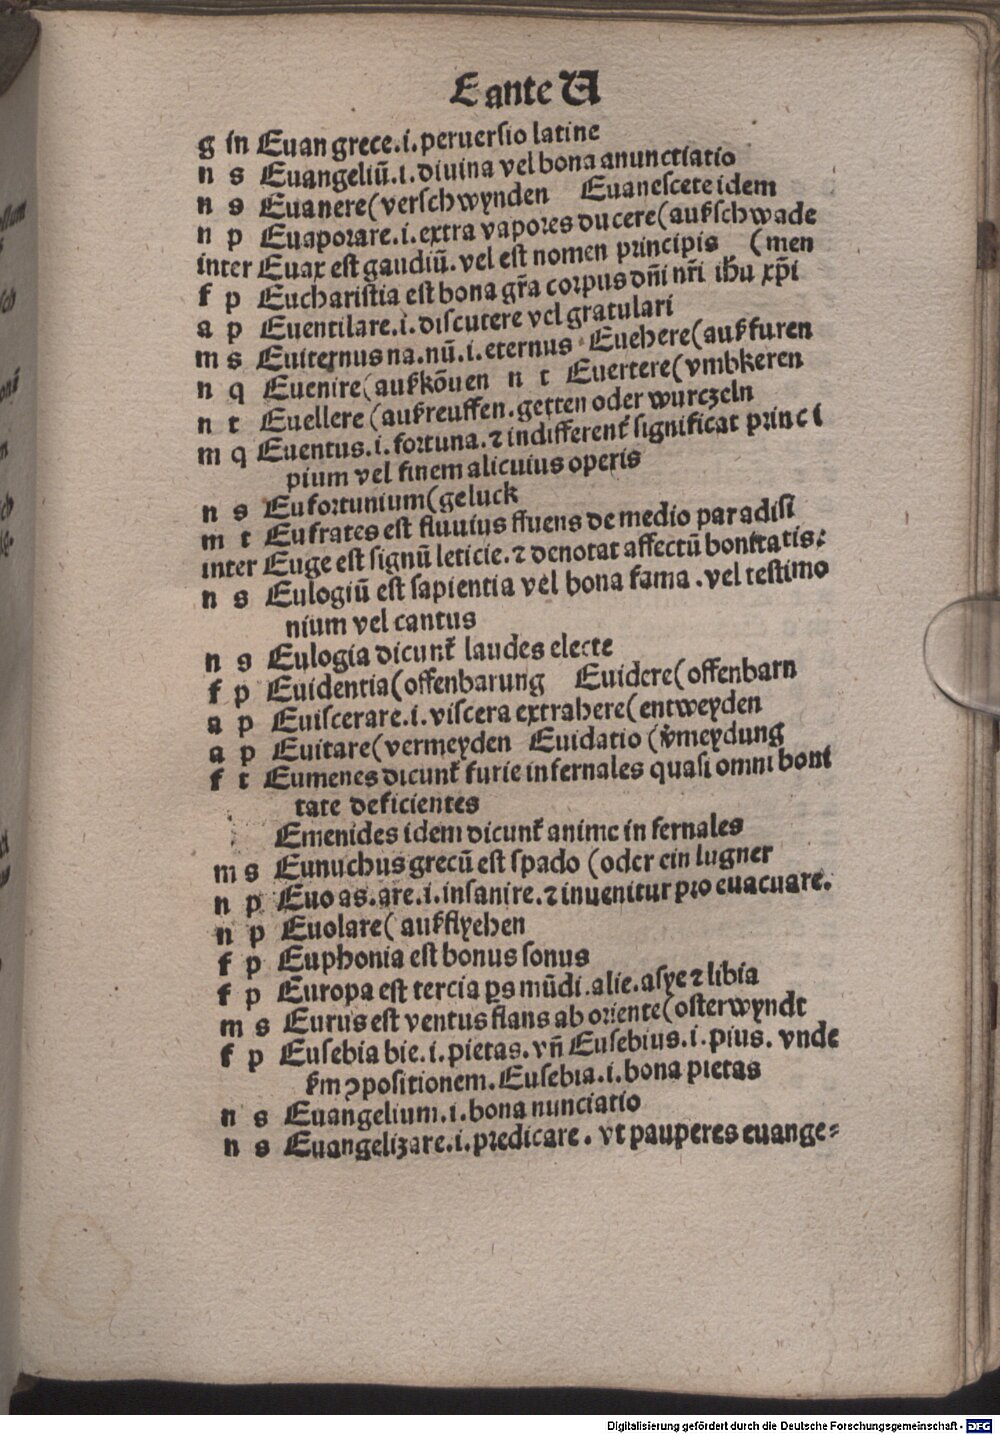 E ante U
g in Euan grece.i.peruersio latine
n s Euangeliū.i.diuina vel bona anunctiatio
n s Euanere(verschwynden Euanescete idem
n p Euaporare.i.extra vapores ducere(aufschwade
inter Euax est gaudiū.vel est nomen principis (men
f p Eucharistia est bona gr̄a corpus dn̄i nr̄i ih̄u xp̄i
a p Euentilare.i.discutere vel gratulari
m s Euiternus na.nū.i.eternus Euehere(auffuren
n q Euenire(aufkōuen n t Euertere(vmbkeren
n t Euellere(aufreuffen.getten oder wurczeln
m q Euentus.i.fortuna.⁊ indifferent᷑ significat princi
pium vel finem alicuius operis
n s Eufortunium(geluck
m t Eufrates est fluuius ffuens de medio paradisi
inter Euge est signū leticie.⁊ denotat affectū bonitatis:
n s Eulogiū est sapientia vel bona fama.vel testimo
nium vel cantus
n s Eulogia dicunt᷑ laudes electe
f p Euidentia(offenbarung Euidere(offenbarn
a p Euiscerare.i.viscera extrahere(entweyden
a p Euitare(vermeyden Euidatio(v̓meydung
f t Eumenes dicunt᷑ furie infernales quasi omni boni
tate deficientes
Emenides idem dicunt᷑ anime in fernales
m s Eunuchus grecū est spado (oder ein lugner
n p Euo as.are.i.insanire.⁊ inuenitur pro euacuare.
n p Euolare(aufflyehen
f p Euphonia est bonus sonus
f p Europa est tercia ꝑs mūdi.alie.asye ⁊ libia
m s Eurus est ventus flans ab oriente(osterwyndt
f p Eusebia bie.i.pietas.vn̄ Eusebius.i.pius. vnde
ẜm ꝯpositionem.Eusebia.i.bona pietas
n s Euangelium.i.bona nunciatio
n s Euangelizare.i.predicare. vt pauperes euange⸗
Digitalisierung gefördert durch die Deutsche Forschungsgemeinschaft - DFG